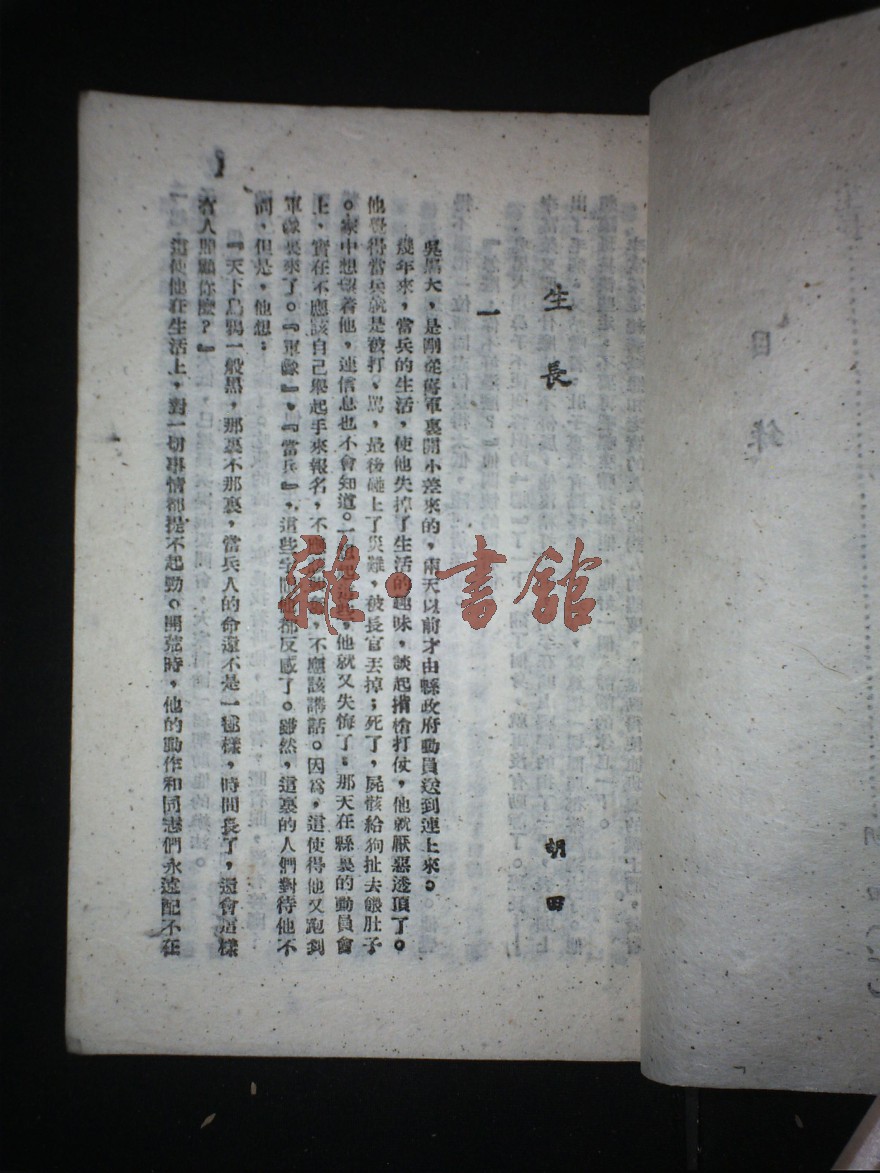 目錄
生長
胡田
一
吳黑大，是剛從舊軍裏開小差來的，兩天以前才由縣政府動員送到連上來。
幾年來，當兵的生活，使他失掉了生活的趣味，談起揹槍打仗，他就厭惡透頂了。
他覺得當兵就是被打，罵，最後碰上了災難，被長官丟掉；死了，屍骸給狗扯去餵肚子
。家中想望着他，連信息也不會知道。一想起這些，他就又失悔了。那天在縣裏的動員會
上，實在不應該自己舉起手來報名，不應，不應該講話。因爲，這使得他又跑到
軍隊裏來了。『軍隊』，『當兵』，這些字間他都反感了。雖然，這裏的人們對待他不
同，但是，他想：
『天下烏鴉一般黑，那裏不那裏，當兵人的命還不是一樣樣，時間長了，還會這樣
有人照顧你麼？』
這使他在生活上，對一切事情都提不起勁。開荒時，他的動作和同志們永遠配不在
1
雜·書館